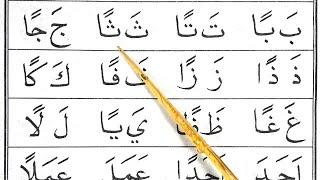 بَ بًا تَ تًا ثَ ثًا جَ جًا
ذَ ذًا زَ زًا فَ فًا كَ كًا
غَ غًا ظَ ظًا يَ يًا لَ لًا
اَحَدَ اَحَدًا عَمَلَ عَمَلًا